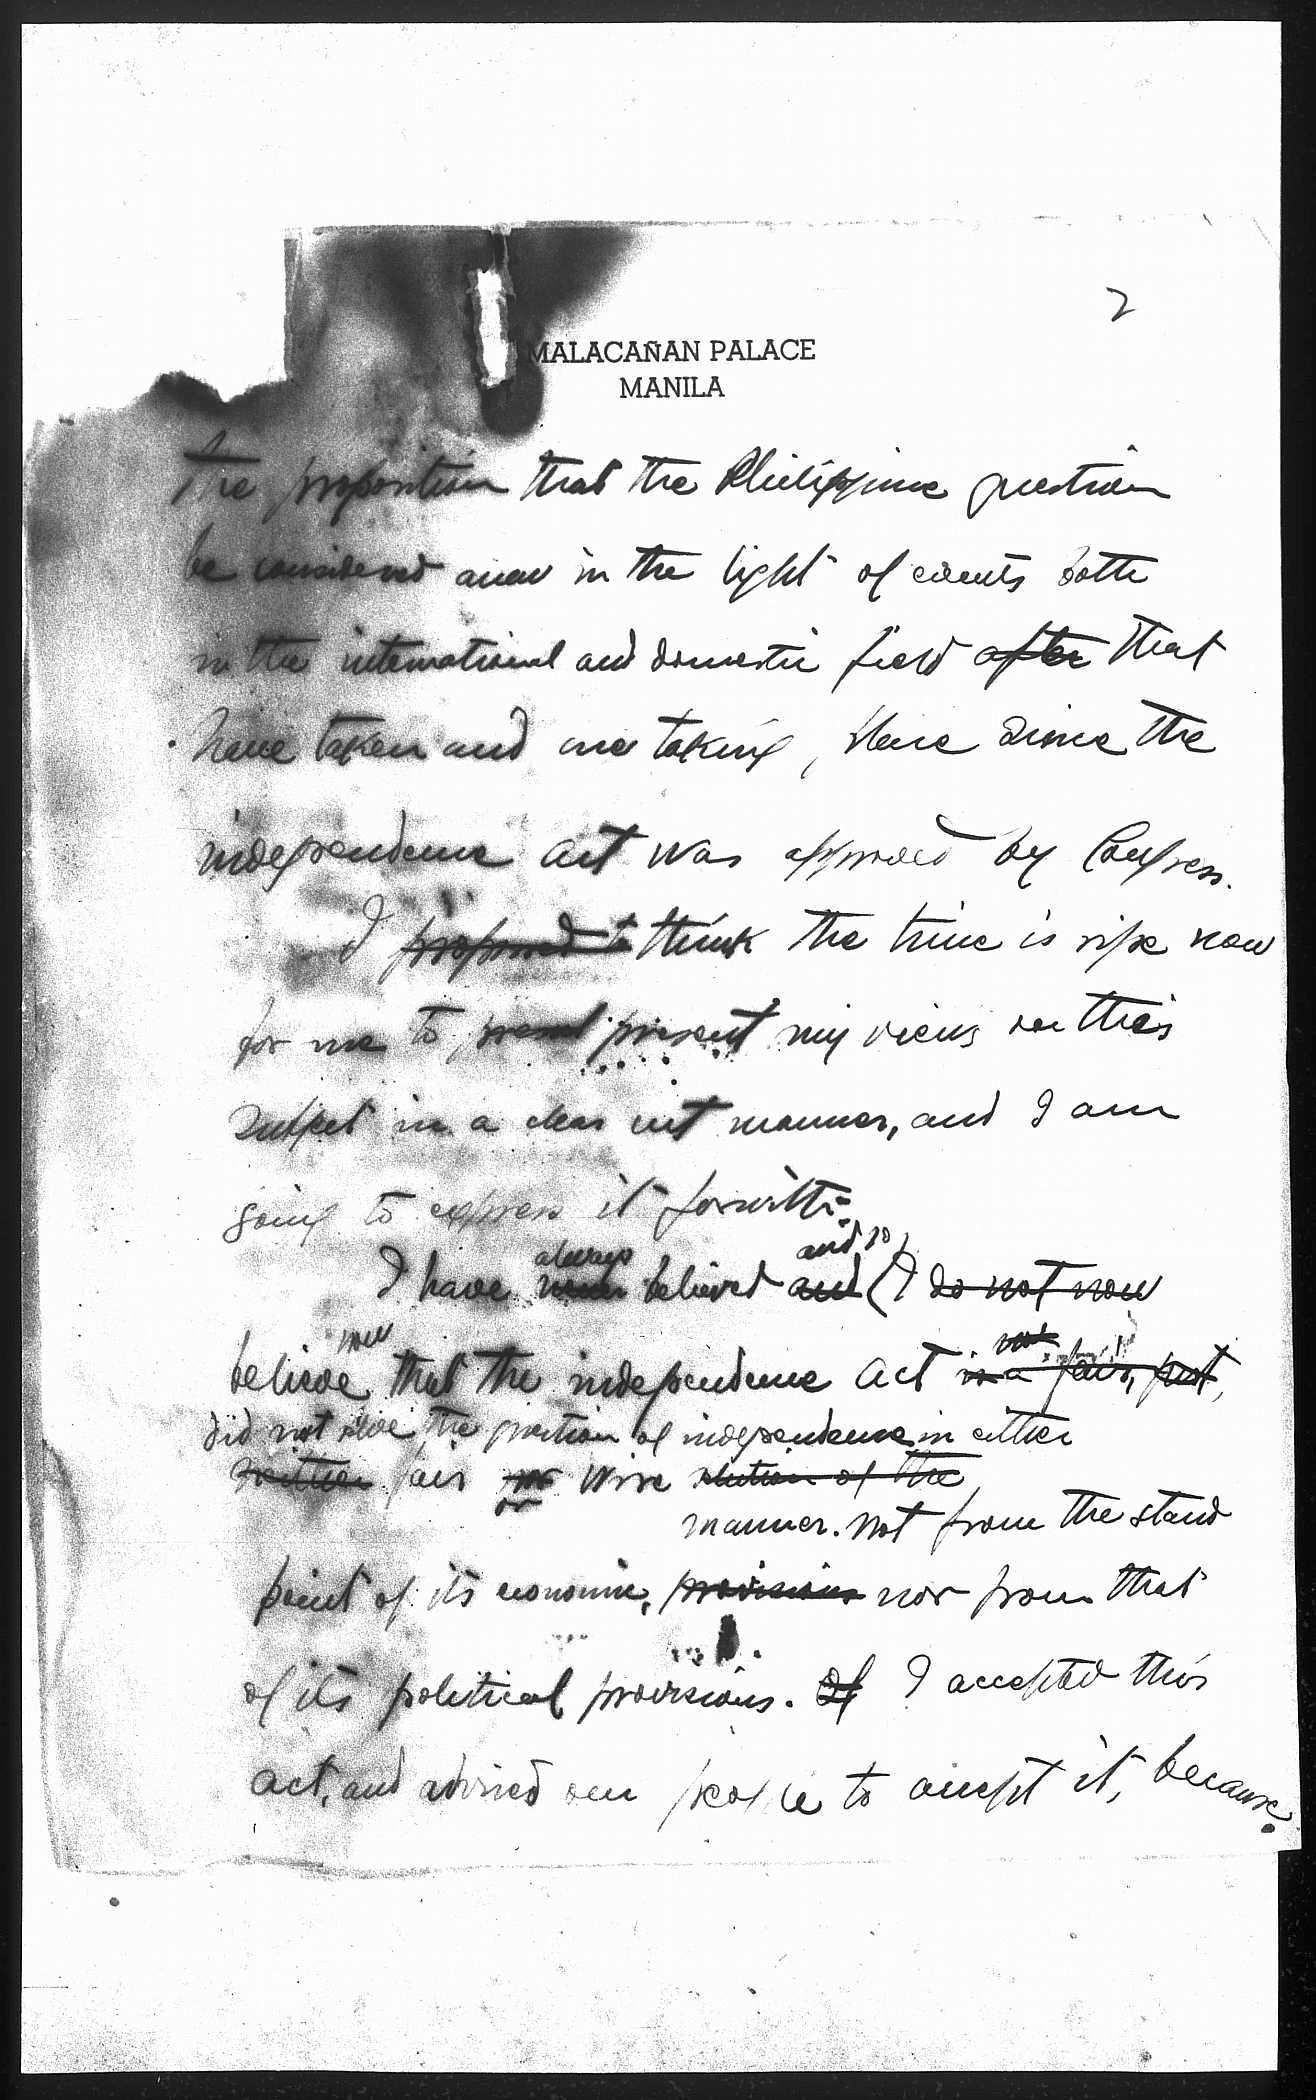 2
MALACAÑAN PALACE
MANILA
the proposition that the Philippine question
be considered anew in the light of events both
in the international and domestic field after that
have taken and are taking, place since the
independence act was approved by Congress.
I proposed to think the time is ripe now
for me to present my views on this
subject in a clear cut manner, and I am
going to express it forwith.
always and so
I have never believed and (I do not now
now not
believe that the independence act is a fair, just,
did not solve the question of independence in either
neither fair nor or wise solution of the
manner. Not from the stand
point of its economic, provisions nor from that
of its political provisions. If I accepted this
act, and advised our people to accept it, because